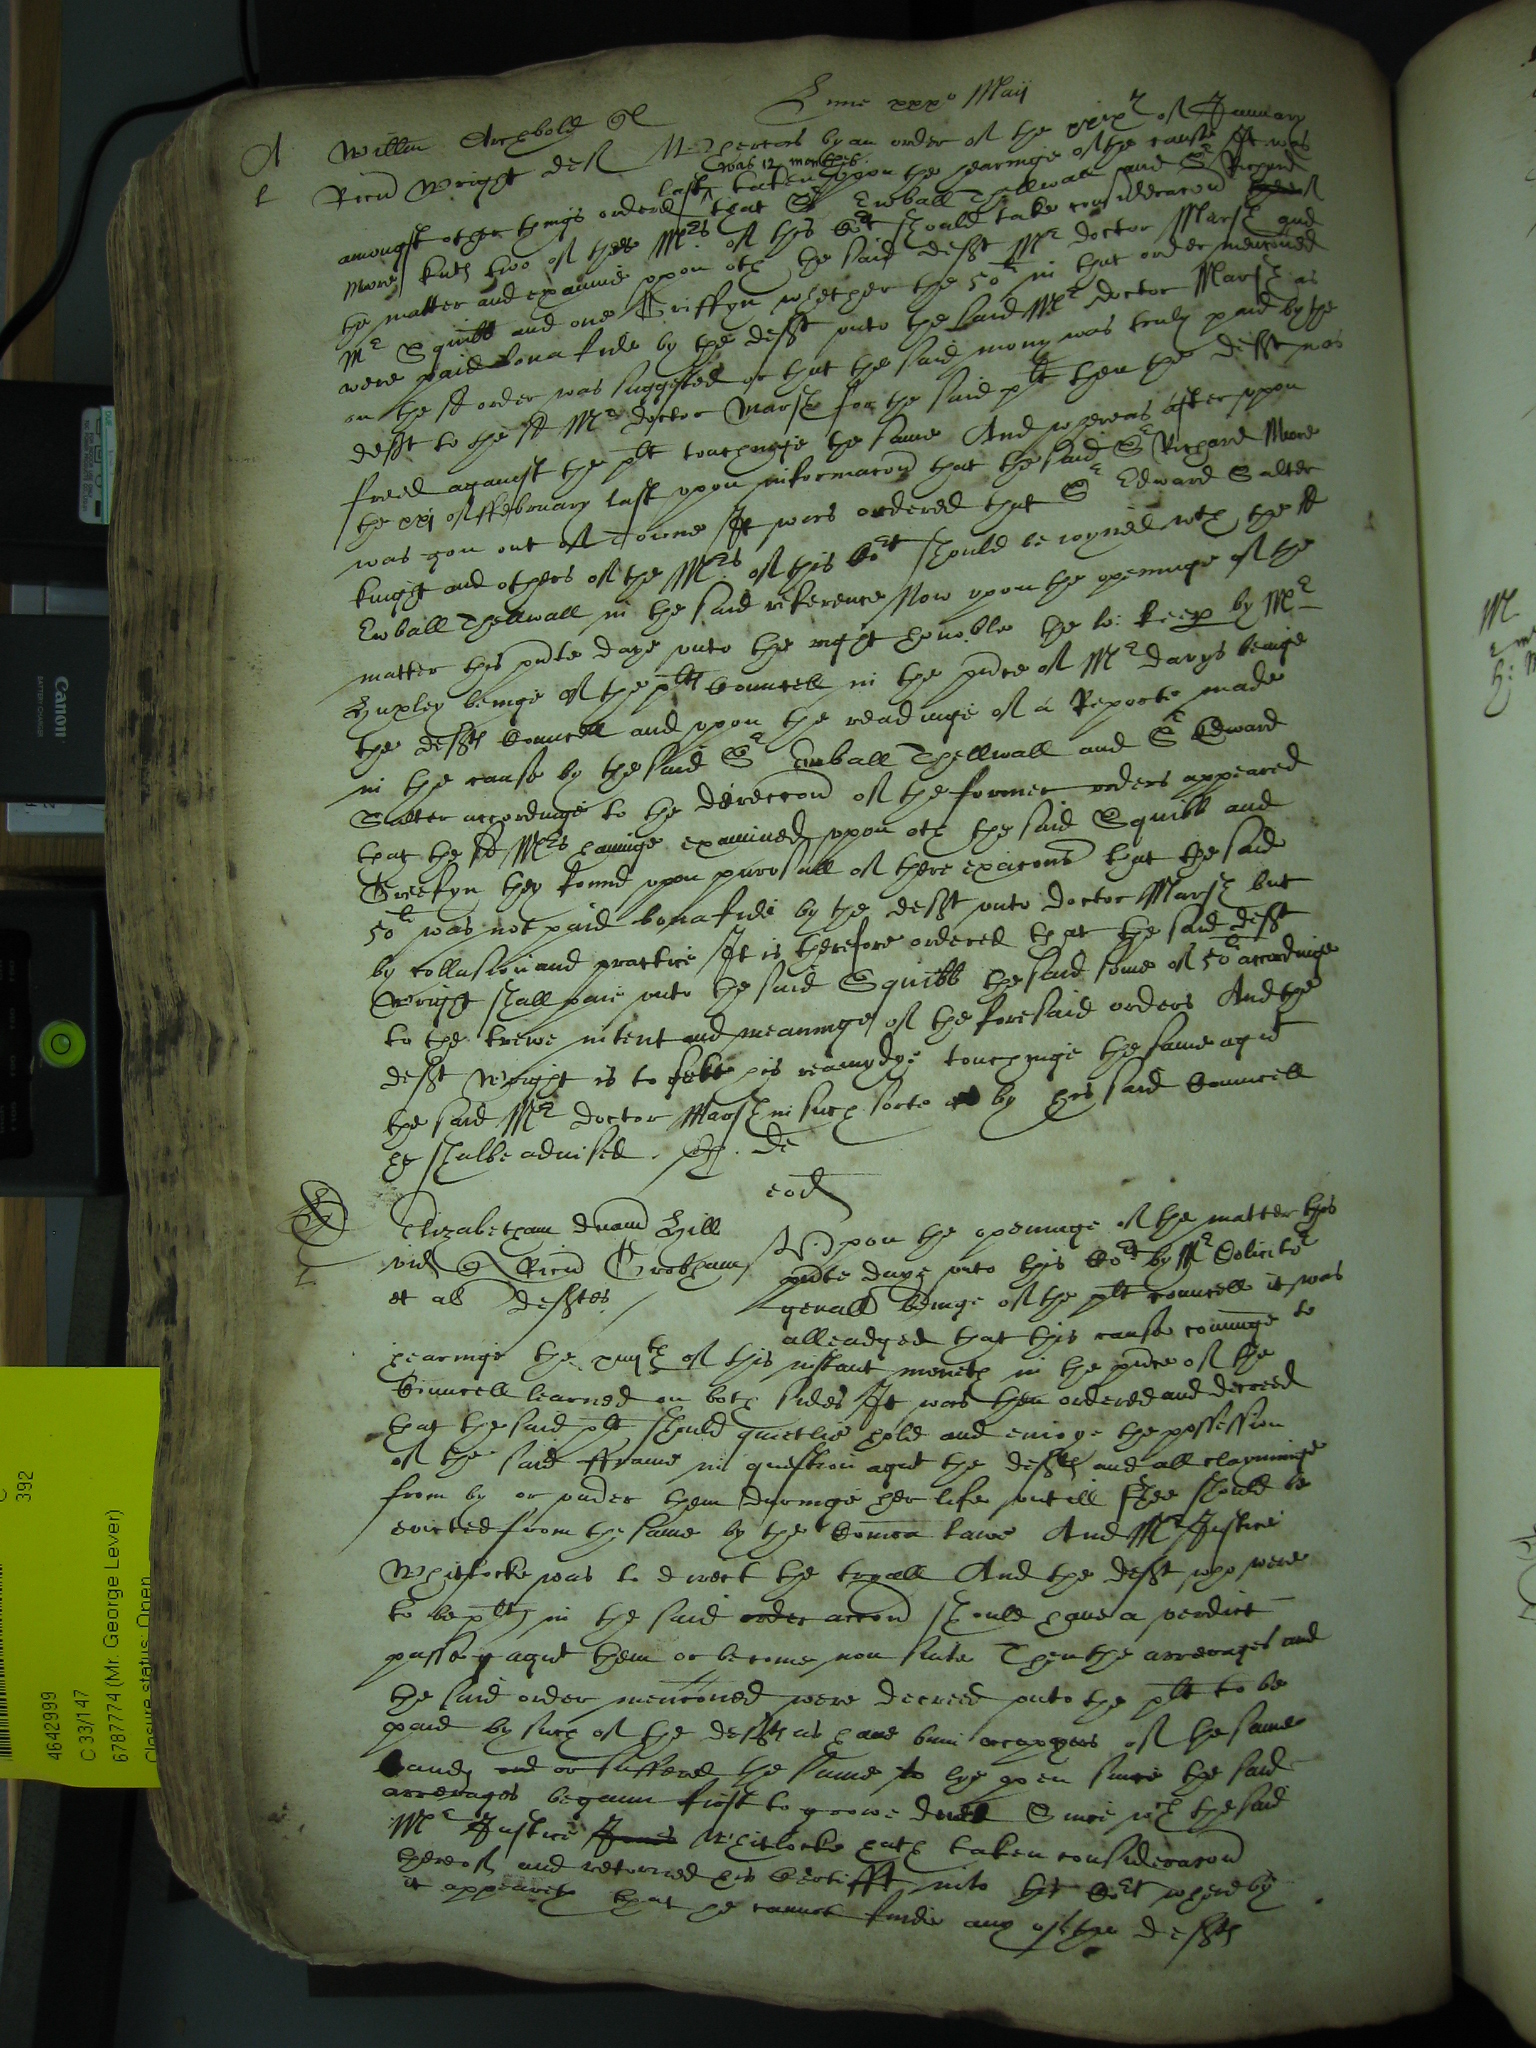 Lune xxx° Maij
A Willm Archbold Pl
L Ricd Wright deft Whereas by an order of the xxixth of January
last was 12 monthes taken upon the hearinge of the cause It was
amongst other things ordered that Sr Euball Thellwall and Sr Richard
Moore knts two of the Mrs of this Cort should take consideracon
the matter and examine upon oth the said deft Mr doctor Marsh and
Mr Squibb and one Griffyn whether the 50li in that order menconed
were paid bona fide by the deft unto the said Mr doctor Marsh as
in the sd order was suggested or that the said mony was truly paid by the
deft to the sd Mr doctor Marsh for the said plt then the deft was
freed against the plt touchinge the same And whereas after upon
the xxj of ffebruary last upon informacon that the said Sr Richard Moore
was gon out of Towne It was ordered that Sr Edward Salter
knight and others of the Mrs of this Cort should be ioyned wth the sd
Euball Thellwall in the said reference Now upon the openinge of the
matter this pnte daye unto the right honoble the lo: keep by Mr
Huxley beinge of the plts Councell in the pnce of Mr Davys beinge
the defts Councell and upon the readinge of a Reporte made
in the cause by the said Sr Euball Thellwall and Sr Edward
Salter accordinge to the direccon of the former orders appeared
that the sd Mrs havinge examined upon oth the said Squibb and
Greefyn they found upon perusall of there exacons that the said
50li was not paid bona fide by the deft unto doctor Marsh but
by collusion and practice It is therefore ordered that the said deft
Wright shall paie unto the said Squibb the said some of 50li accordinge
to the trewe intent and meaninge of the foresaid orders And the
deft Wright is to seeke his reamydye touchinge the same agt
the said Mr doctor Marsh in such sorte as by his said Councell
he shalbe advised.
eod
Elizabetham duam Hill
vid Q Ricd Grobham
et al defts
Upon the openinge of the matter this
pnte daye unto this Cort by Mr Solicitor
genall beinge of the plts councell it was
alleadged that this cause cominge to
hearinge the xiiijth of this instant moneth in the pnce of the
Councell learned on both sides It was then ordered and decreed
that the said plt should quietlie hold and enioye the possession
of the said fframe in question agt the defts and all clayminge
from by or under them duringe her life untill shee should be
evicted from the same by the Comon lawe And Mr Justice
Whitlocke was to direct the tryall And the deft who were
to be plts in the said order accon should have a verdict
passe agt them or become non sute Then the arrerages and
the said order menconed were decreed unto the plt to be
paid by such of the defts as have bein occupyers of the same
land and or suffered the same to lye open since the said
arrerages begann first to growe due Since wch the said
Mr Justice Jones Whitlocke hath taken consideracon
thereof and retorned his Certifft into this Cort whereby
it appeareth that he cannot finde any of the defts
Canon
BATTERY CHARGER
392
4642999
C 33/147
6787774 (Mr. George Lever)
Closure status: Open